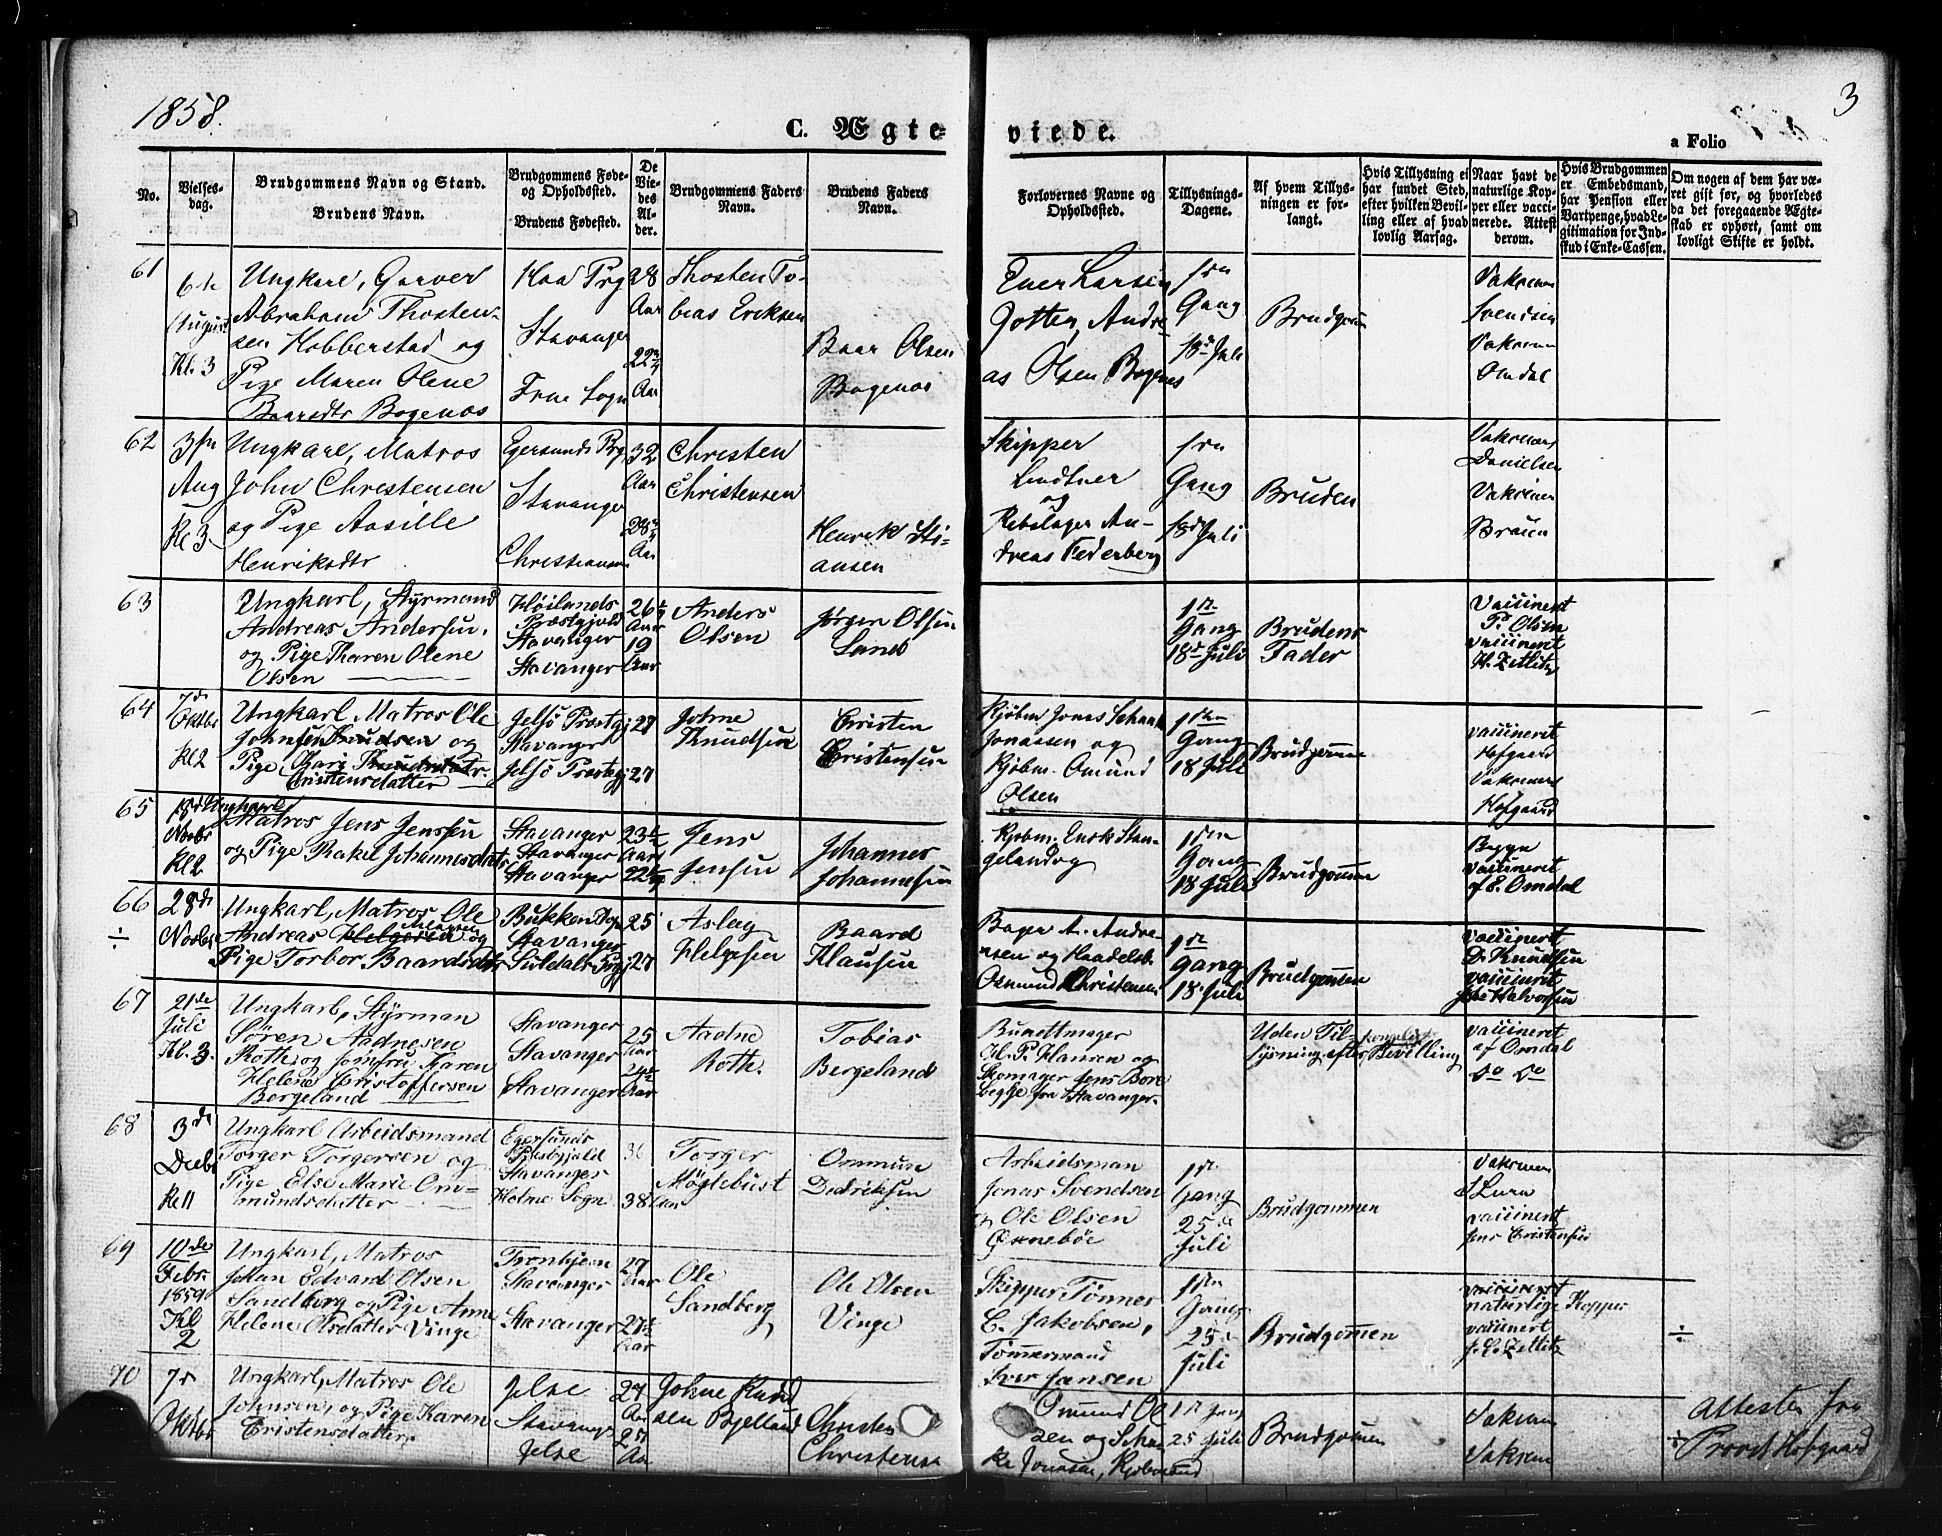 1858.
3
C. Ægteviede.
a Folio
No.
Vielsesdag.
Brudgommens Navn og Stand.
Brudens Navn.
Brudgommens Føde- og Opholdssted.
Brudens Fødested.
De Viedes Alder.
Brudgommens Faders Navn.
Brudens Faders Navn.
Forlovernes Navne og Opholdssted.
Tillysnings-Dagene.
Af hvem Tillysningen er forlangt.
Hvis Tillysning ei har fundet Sted, efter hvilken Bevilling eller af hvad lovlig Aarsag.
Naar havt de naturlige Kopper eller vaccinerede. Attest derom.
Hvis Brudgommen er Embedsmand, har Pension eller Vartpenge, hvad Legitimation for Indskud i Enke-Cassen.
Om nogen af dem har været gift før, og hvorledes da det foregaaende Ægteskab er ophørt, samt om lovligt Skifte er holdt.
61
6te August Kl. 3
Ungkarl, Garver
Abraham Thosten-
sen Hobberstad og
Pige Maren Olene
Baardts Bogenæs
Haa Prg
Stavanger
Sogn
28 Aar
22 3/4 Aar
Thosten To-
bias Eriksen
Baar Olsen
Bogenæs
Ener Larsen
Jotten, Andre-
as Olsen Bogenes
Gang
18de Juli
Brudgom
Vaksinen
Svendsen
Vaksinen
Omdal
62
3die Aug Kl 3
Ungkarl, Matros
John Christensen
og Pige Aasille
Henriksdtr
Egersunds Prg
Stavanger
Christiansa
32 Aar
28 3/4 Aar
Christen
Christensen
Henrik Sti-
ansen
Skipper
Lindtner
og
Rebslager An-
dreas Federberg
Gang
18de Juli
Bruden
Vaksinen
Danielsen
Vaksinen
Bruun
63
Ungkarl, Styrmand
Andreas Andersen.
og Pige Tharen Olene
Olsen
Høilands
Præstgjeld
Stavanger
Stavanger
26
Aar
19
Aar
Anders
Olsen
Jørgen Olsen
Sand
1ste
Gang
18de Juli
Brudens
Fader
vaccineret
P. Olsen
vaccineret
H. Zetlitz
64
7de Oktbr Kl 2
Ungkarl, Matros Ole
Johnsen Knudsen og
Pige Kari
Cristensdatter
Jelsø Præstgj
Stavanger
Jelsø Præstgj
27
27
Johne
Knudsen
Cristen
Cristensen
Kjøbm. Jonas Schanke
Jonassen og
Kjøbm. Omund
Olsen
1ste
Gang
18 Juli
Brudgommen
vaccineret
Hofgaard
Vaksinen
Hofgaard
65
18de Novbr Kl 2
Ungkarl
Matros Jens Jenssen
og Pige Rakel Johannesdatr
Stavanger
Stavanger
Stavanger
23 Aar
22
Jens
Jensen
Johannes
Johannesen
Kjøbm. Enok Stan-
gelandog
1ste
Gang
18 Juli
Brudgommen
vaccineret
af E. Omdal
66
÷
28de Novbr
Ungkarl, Matros Ole
Andreas Helgesen og
Pige Torbor Baardsdatr
Bukken Sogn
Stavanger
Suldals Prgj
25
27
Aslag
Helgesen
Baard
Klausen
Bager A. Andre-
asen og Haadelsb.
Osmund Christensen
1ste
Gang
18 Juli
Brudgommen
vaccineret
D. Knudsen
vaccineret
Halvorsen
67
21de Juli Kl. 3.
Ungkarl, Styrman
Søren Aadnesen
Roth. og Jomfru. Karen
Helene Cristoffersen
Bergeland
Stavanger
Stavanger
Stavanger
25
Aar
24
Aar
Aadne
Roth.
Tobias
Bergeland
Buntmager
H. P. Hansen og
Skomager Jens Bore
begge fra Stavanger.
Uden Til-
lysning efter kongelig Bevilling
vaccineret
af Omdal
do do
68
3de Decbr Kl 11
Ungkarl Arbeidsmand
Torger Torgersen og
Pige Else Marie Om-
mundsdatter
Egersunds
Præstgjeld
Stavanger
Holme Sogn
36
38 Aar
Torger
Møgtebust
Ommun
Didriksen
Arbeidsman
Jonas Svendsen
og Ole Olsen
Ørnebøe
1ste
Gang
25de
Juli
Brudgommen
Vaksinen
S Lura
vaccineret
Jens Cristensen
69
10de Febr. 1859 Kl 2
Ungkarl, Matros
Johan Edvard Olsen
Sandberg og Pige Anne
Helene Olsdatter Vinge
Tronhjem
Stavanger
Stavanger
27
Aar
27
Aar
Ole
Sandberg
Ole Olsen
Vinge
Skipper Tønnes
C. Jakobsen,
Tømmermand
Iver Jansen
1ste
Gang
25de
Juli
Brudgommen
vaccineret
naturlige Kopper
vaccineret
J. C. Zetlitz
÷
70
7de Oktbr
Ungkarl, Matros Ole
Johnsen, og Pige Karen
Cristensdatter
Jelse
Stavanger
Jelse
27
Aar
27
Aar
Johne Knud
sen Bjelland
Christen
Christensen
Omund Ol
sen og Schan
ke Jonasen, Kjøbmænd
1ste Gang
25 Juli
Brudgommen
Vaksinen
Vaksinen
Attester fra
Provst Hofgaard